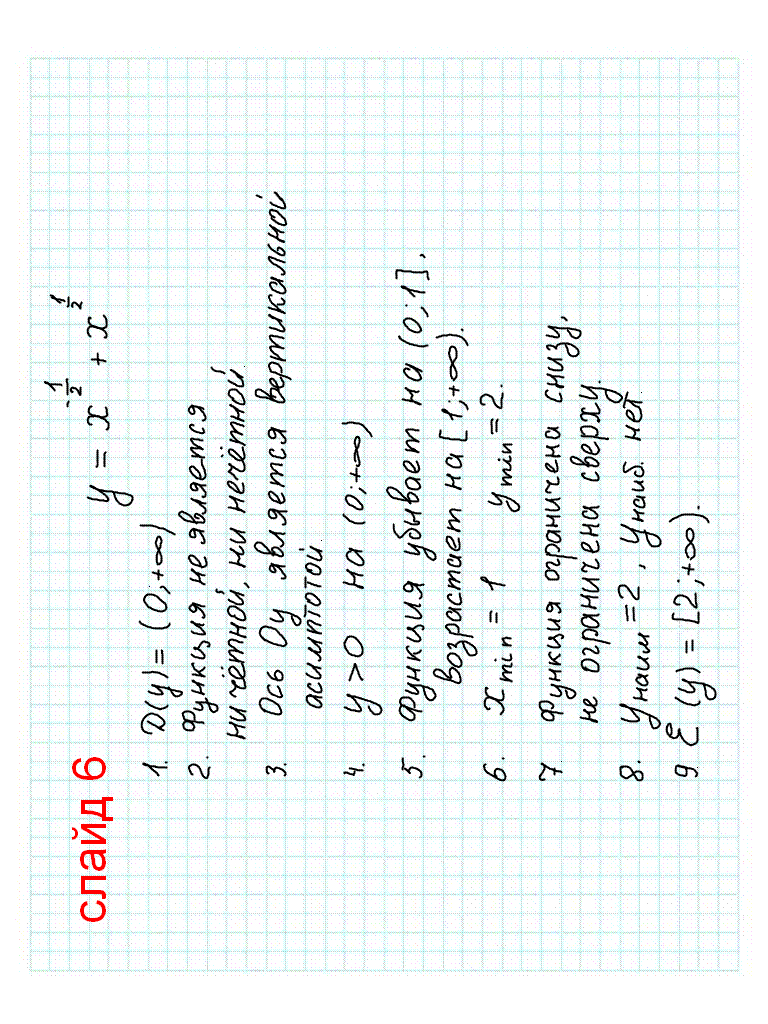 слайд 6
y = x^{-\frac{1}{2}} + x^{\frac{1}{2}}
1. D(y) = (0; +∞)
2. Функция не является
ни чётной, ни нечётной
3. Ось Oy является вертикальной
асимптотой
4. y > 0 на (0; +∞)
5. Функция убывает на (0; 1],
возрастает на [1; +∞).
6. x min = 1 y min = 2.
7 Функция ограничена снизу,
не ограничена сверху.
8. y наим = 2, y наиб. нет
9 E (y) = [2; +∞).